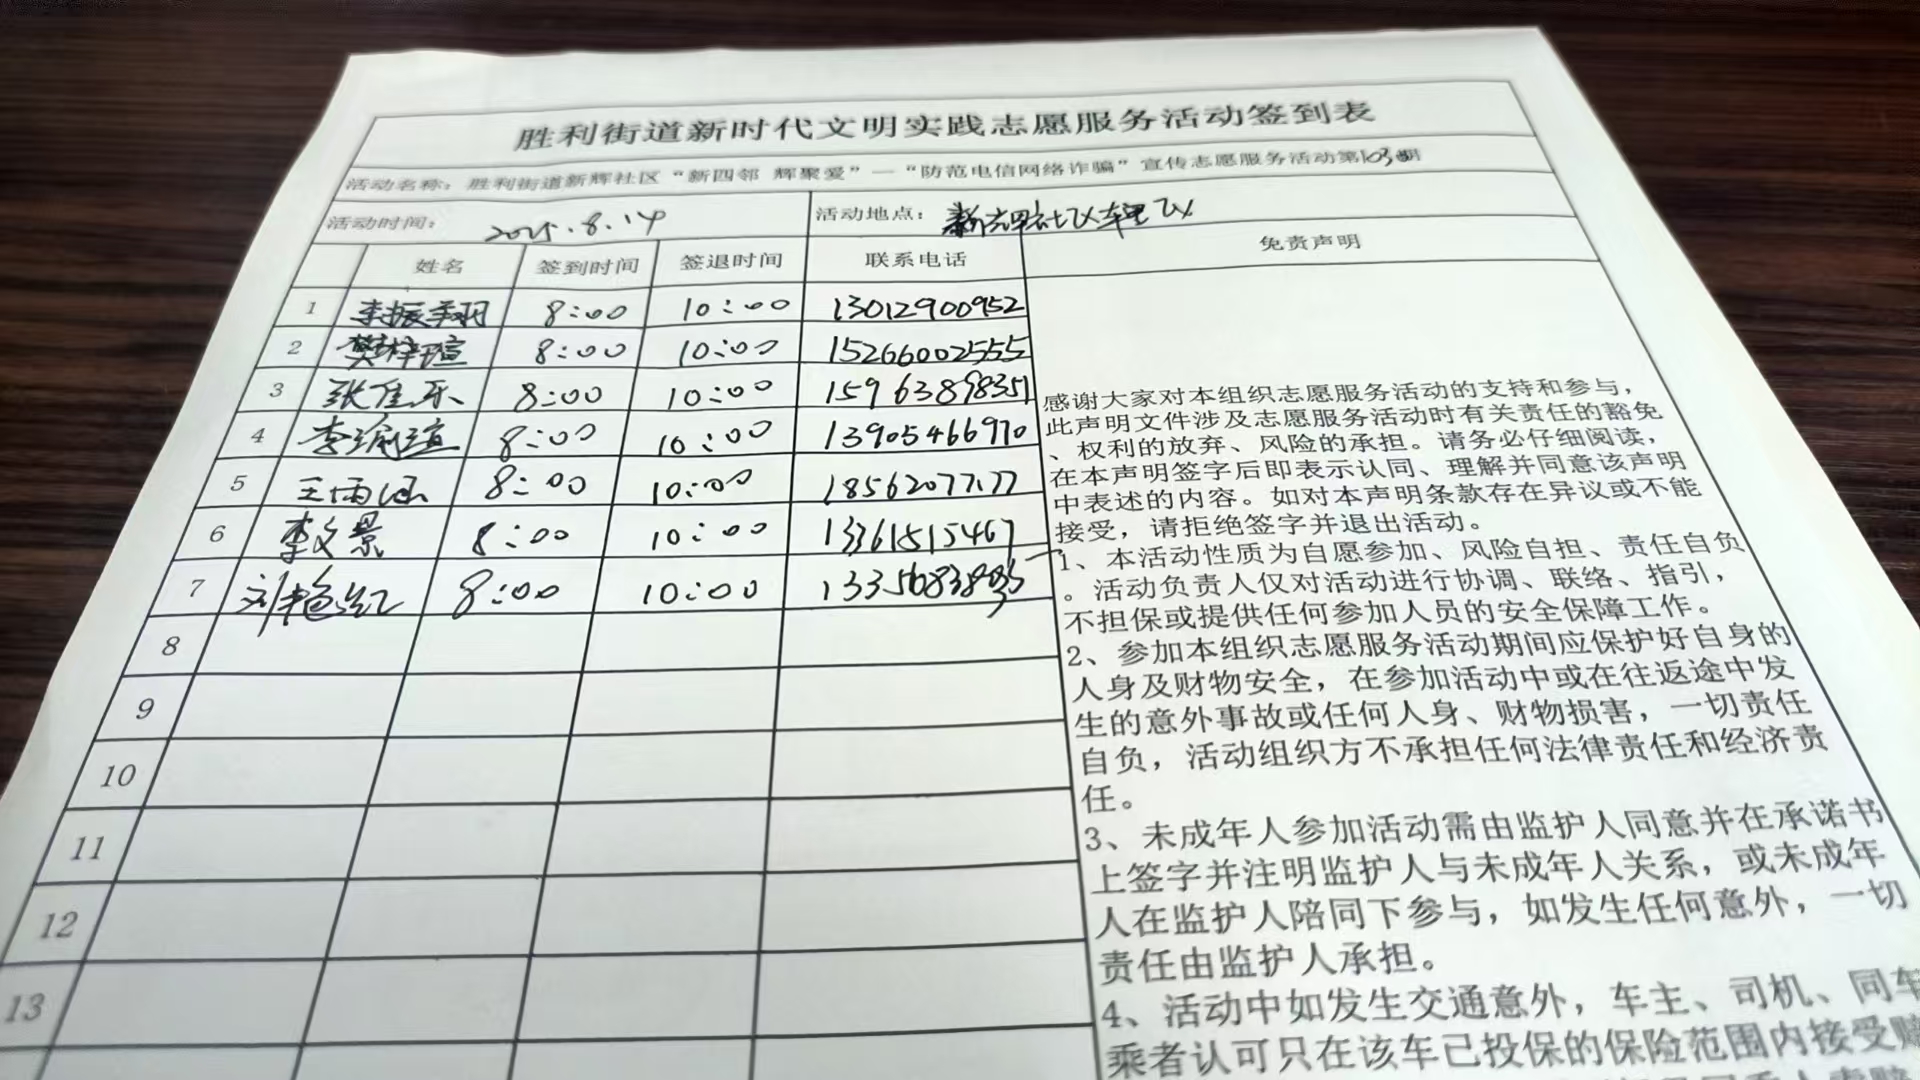 胜利街道新时代文明实践志愿服务活动签到表
活动名称：胜利街道新辉社区“新四邻 辉聚爱”—“防范电信网络诈骗”宣传志愿服务活动第103期
活动时间： 2025.8.14 活动地点：
姓名 签到时间 签退时间 联系电话 免责声明
1 李振翔 8:00 10:00 13012900952
2 樊梓瑄 8:00 10:00 15266002555
3 张佳乐 8:00 10:00 15963898351
4 李瑜瑄 8:00 10:00 13905466970
5 王雨涵 8:00 10:00 18562077177
6 李文景 8:00 10:00 13361515467
7 刘艳红 8:00 10:00
8
9
10
11
12
13
感谢大家对本组织志愿服务活动的支持和参与，
此声明文件涉及志愿服务活动时有关责任的豁免
、权利的放弃、风险的承担。请务必仔细阅读，
在本声明签字后即表示认同、理解并同意该声明
中表述的内容。如对本声明条款存在异议或不能
接受，请拒绝签字并退出活动。
1、本活动性质为自愿参加、风险自担、责任自负
。活动负责人仅对活动进行协调、联络、指引，
不担保或提供任何参加人员的安全保障工作。
2、参加本组织志愿服务活动期间应保护好自身的
人身及财物安全，在参加活动中或在往返途中发
生的意外事故或任何人身、财物损害，一切责任
自负，活动组织方不承担任何法律责任和经济责
任。
3、未成年人参加活动需由监护人同意并在承诺书
上签字并注明监护人与未成年人关系，或未成年
人在监护人陪同下参与，如发生任何意外，一切
责任由监护人承担。
4、活动中如发生交通意外，车主、司机、同车
乘者认可只在该车已投保的保险范围内接受赔